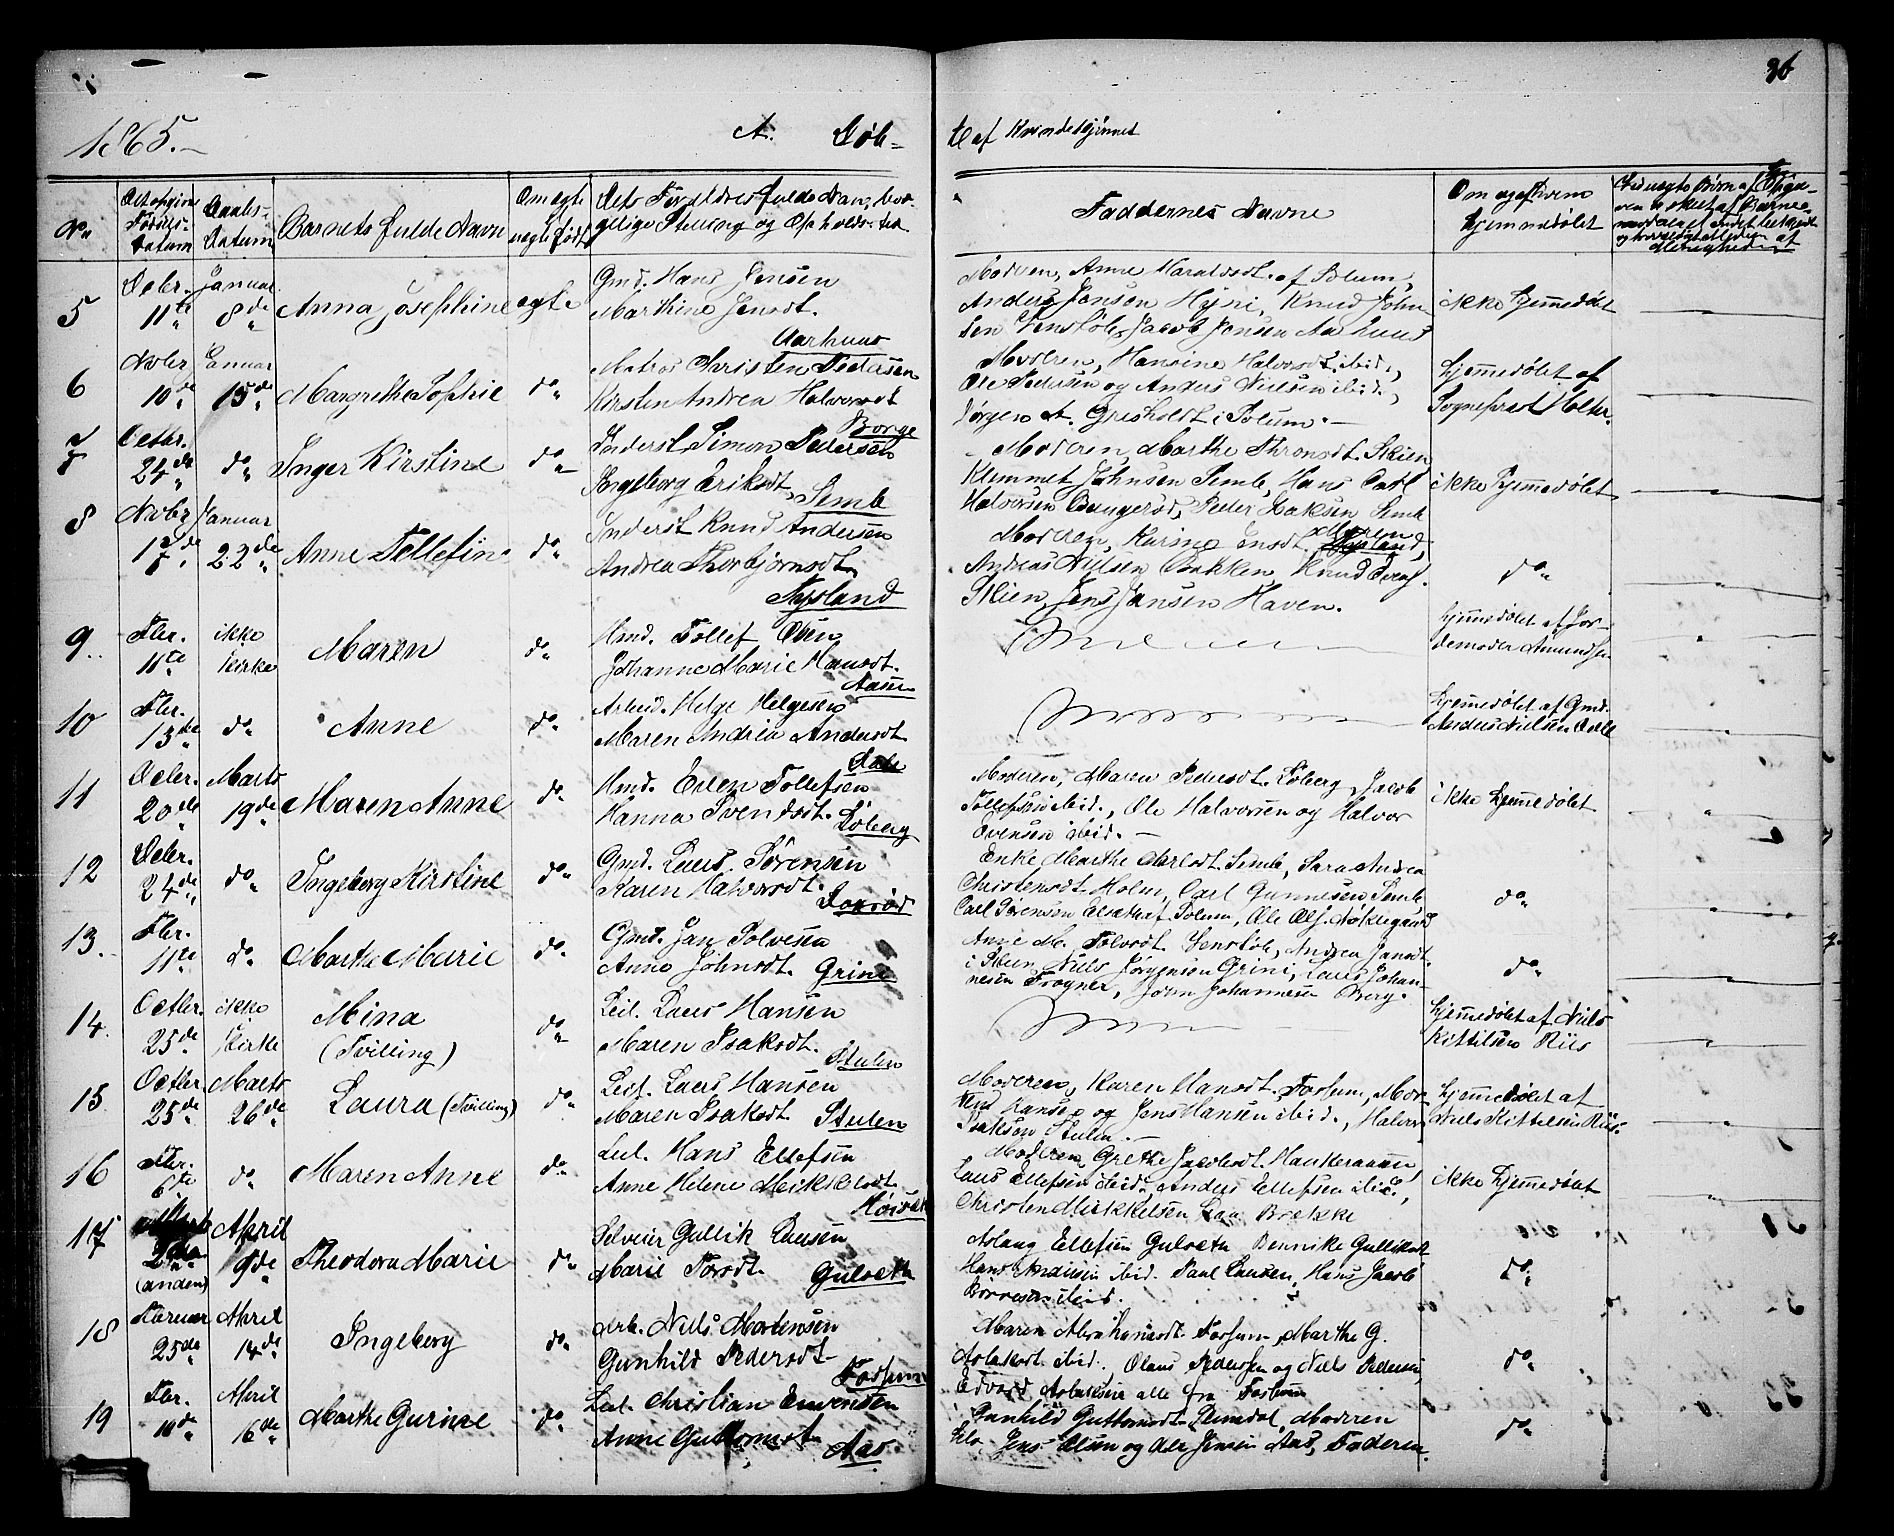 96
1865.
A. Föd-
te af Kvindekjønnet
No
Født
Datum
Daabs-
Datum
Barnets fulde Navn
Om ægte
uegte født
Forældres fulde Navn, bor-
gerlige Stilling og Opholds-sted
Faddernes Navne
Om og af hvem
hjemmedøbt
5
Decbr. 11te
Januar 8de
Anna Josephine
ægte
Gmd. Hans Jensen
Marthine Jensdt.
Aarhuus
Moderen, Anne Haraldsdt. af Solum,
Anders Jonson Hyni, Knud John
sen Venstøb, Jacob Jensen Aarhuus
ikke hjemmedøbt
6
Novbr 10de
Januar 15de
Margrethe Sophie
do
Matros Christen Pedersen
Kirsten Andrea Halvorsdt
Borge
Moderen, Hansine Halvorsdt. ibid.,
Ole Pedersen og Anders Nielsen ibid.,
Jørgen A. Grisholdt i Solum.
hjemmedøbt af
Sogneprest Holter.
7
Octbr. 24de
do
Inger Kirstine
do
Inderst Simon Pedersen
Ingeborg Eriksdt.
Semb
Moderen, Marthe Thronsdt. Skien
Klemmet Johnsen Semb, Hans Carl
Halvorsen Bungerød, Peder Isaksen Semb
ikke hjemmedøbt
8
Novbr 17de
Januar 22de
Anne Tellefine
do
Inderst Knud Andersen
Andrea Thorbjørnsdt.
Fysland
Moderen, Karine Ensdt.
Andreas Nielsen Bakken, Knud
Skien, Jens Jansen Haven.
do
9
Fbr. 11te
ikke Kirke
Maren
do
Hmd. Tollef Olsen
Johanne Marie Hansdt.
Aasen
hjemmedøbt af Jor-
demoder Amundsen
10
Fbr. 13de
do
Anne
do
Arbeid. Helge Helgesen
Maren Andrea Andersdt.
Dale
hjemmedøbt af Gmd.
Anders Nielsen Dalle
11
Decbr. 20de
Marts 19de
Maren Anne
do
Hmd. Even Tollefsen
Hanna Svensdt.
Løberg
Moderen, Maren Pedersdt. Løberg, Jacob
Tollefsen ibid., Ole Halvorsen og Halvor
Evensen ibid.
ikke hjemmedøbt
12
Decbr. 24de
do
Ingeborg Kirstine
do
Gmd. Laers Sørensen
Karen Halvorsdt.
Enke Marthe Carlsdt. Semb, Sara Andrea
Christensdt Holm, Carl Gunnesen Semb,
Carl Sørensen af Solum, Ole Ols.
do
13.
Fbr. 11te
do
Marthe Marie
do
Gmd. Jan Solvesen
Anne Johnsdt.
Grini
Anne M. Tolvsdt. Venstøb, Andrea Jansdt.
i Skien Niels Jørgensen Grini, Laers Johan-
nesen Frogner, John Johannesen Berg.
do
14.
Octbr. 25de
ikke Kirke
Mina
(Tvilling)
do
Leil. Laers Hansen
Maren Isaksdt.
Stulen
hjemmedøbt af Niels
Kittilsen Riis
15
Octbr. 25de
Marts 26de
Laura (Tvilling)
do
Leil. Laers Hansen
Maren Isaksdt
Stulen
Moderen, Karen Hansdt. Fossum, Mor-
ten Hansen og Jens Hansen ibid., Halvor
Isaksen Stulen.
hjemmedøbt af
Niels Kittelsen Riis.
16
Fbr. 6te
do
Maren Anne
do
Leil. Hans Ellefsen
Anne Helene Mikkelsdt.
Moderen, Grethe Jacobsdt. Haukeraasen
Laers Ellefsen ibid., Anders Ellefsen ibid.,
Christen Mikkelsen Brekke
ikke hjemmedøbt
17
(anden)
April 9de
Theodora Marie
do
Selveier Gullik Laersen
Marie Torsdt.
Gulseth
Aslaug Ellefsen Gulseth Bennike Gulliksdt
Hans Andersen ibid. Paul Laersen, Hans Jacob
Børresen ibid.
do
18
Februar 25de
April 14de
Ingeborg
do
Arb. Niels Mortensen
Gunhild Pedersdt
Fossum
Maren Abrahamsdt. Fossum, Marthe G.
Aslaksdt. ibid. Olaus Pedersen og Niels Pedersen,
Edvard Aslaksen alle fra Fossum
do
19
Fbr. 10de
April 16de
Marthe Gurine
do
Leil. Christian Enersen
Anne Guttormsdt.
Aas
Gunhild Guttormsdt Leindal, Moderen
Jens Olsen og Ole Jensen Aas, Faderen.
do